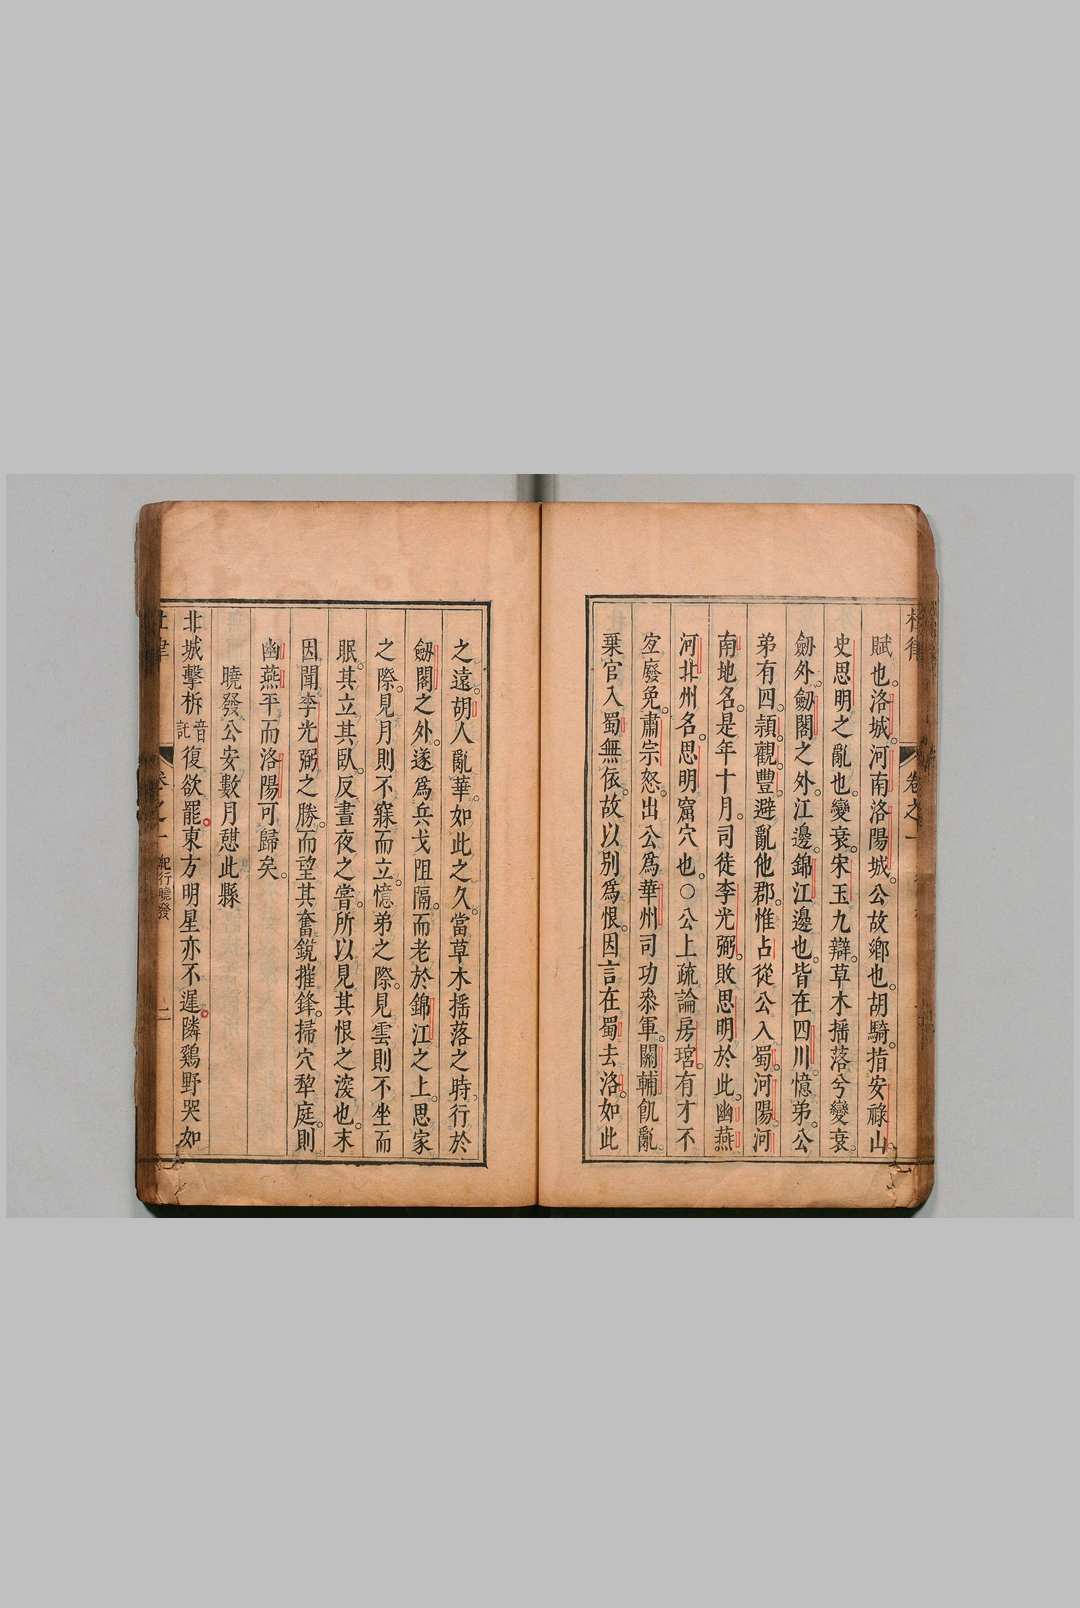 賦也。洛城。河南洛陽城。公故鄉也。胡騎。指安祿山
史思明之亂也。變衰。宋玉九辯。草木搖落兮變衰。
劒外。劒閣之外。江邊。錦江邊也。皆在四川。憶弟。公
弟有四。潁觀豐。避亂他郡。惟占從公入蜀。河陽。河
南地名。是年十月。司徒李光弼。敗思明於此。幽燕。
河北州名。思明窟穴也。○公上疏論房琯。有才不
宜廢免。肅宗怒。出公爲華州司功叅軍。關輔飢亂。
棄官入蜀無依。故以别爲恨。因言在蜀去洛。如此
之遠。胡人亂華。如此之久。當草木揺落之時。行於
劒閣之外。遂爲兵戈阻隔。而老於錦江之上。思家
之際。見月則不寐而立。憶弟之際。見雲則不坐而
眠。其立其臥。反晝夜之甞。所以見其恨之深也。末
因聞李光弼之勝。而望其奮銳摧鋒。掃穴犂庭。則
幽燕平而洛陽可歸矣。
曉發公安數月憇此縣
北城擊柝音託復欲罷。東方明星亦不遲。隣鷄野哭如
卷之一 紀行曉發 二